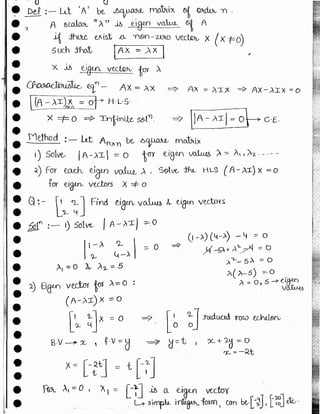 Def :— Let 'A' be square matrix of order n.
A scalar "λ" is eigen value of A
if there exist a non-zero vector X (X≠0)
such that AX = λX
X is eigen vector for λ
Characteristic eqⁿ - AX = λX ⇒ AX = λIX ⇒ AX-λIX = 0
(A-λI)X = 0 → H.L.S
X ≠ 0 ⇒ Infinite solⁿ. ⇒ |A-λI| = 0 → C.E.
Method :— Let Anxn be square matrix
1) Solve |A-λI| = 0 for eigen values λ = λ1, λ2 ------
2) For each eigen value λ. Solve the HLS (A-λI)X = 0
for eigen vectors X ≠ 0
Q:- [1 2 2 4] Find eigen values & eigen vectors
Solⁿ :— 1) Solve |A-λI| = 0
|1-λ 2 2 4-λ| = 0 ⇒ (1-λ)(4-λ) - 4 = 0
4-5λ+λ²-4 = 0
λ²-5λ = 0
λ(λ-5) = 0
λ1 = 0 & λ2 = 5
λ = 0, 5 → eigen values
2) Eigen vector for λ=0 :
(A-λI)X = 0
[1 2 2 4] X = 0 ⇒ [1 2 0 0] reduced row echelon
B.V → x, f.v = y ⇒ y = t, x + 2y = 0
x = -2t
X = [-2t t] = t [-2 1]
For λ1 = 0, X1 = [-2 1] is a eigen vector
↳ simple integer form, can be [-4 2], [-20 10] etc.